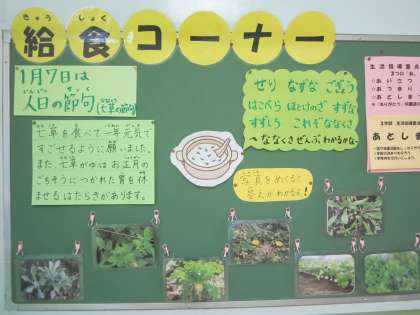 きゅう しょく
給食コーナー
1月7日は
じんじつ せっく
人日の節句
(七草の節句)
七草を食べて一年元気で
すごせるように願いました。
また七草がゆは、お正月の
ごちそうにつかれた胃を休
ませるはたらきがあります。
せり なずな ごぎょう
はこべら ほとけのざ すずな
すずしろ これぞななくさ
～ななくさぜんぶわかるかな～
写真をめくると
答えがわかるよ!
生活指導重点
3つの「あ」
☆あいさつ
☆あつまり
☆あとしまつ
生活指導重点
あとしま